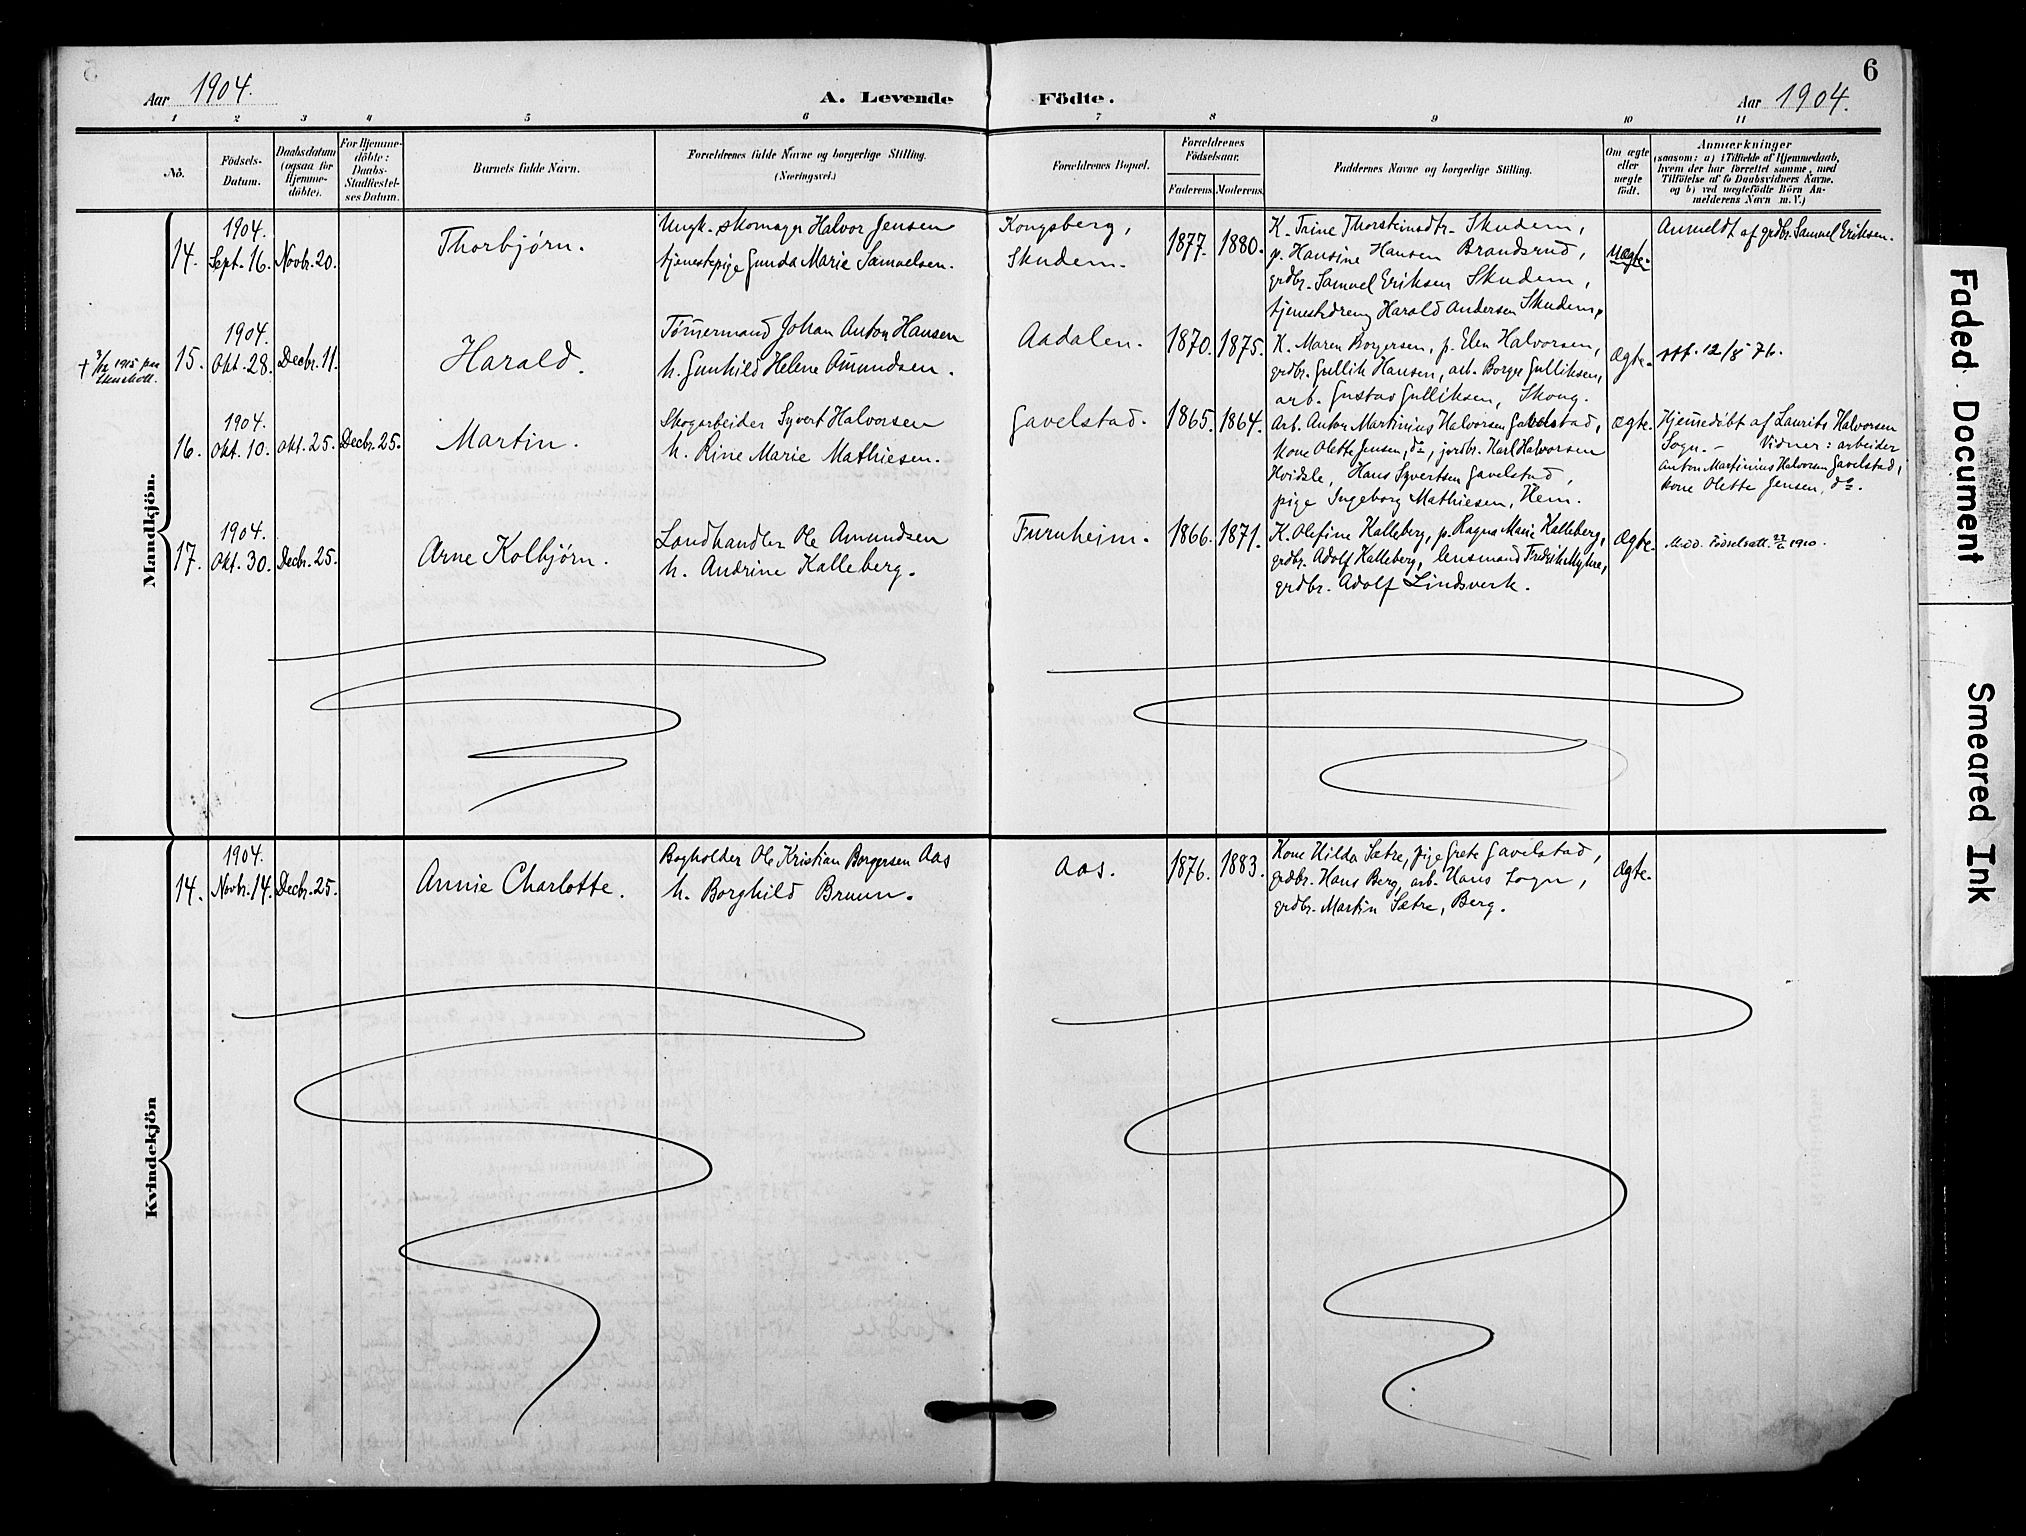 6
Aar 1904.
A. Levende Födte.
Aar 1904.
1 2 3 4 5 6 7 8 9 10 11
No.
Födsels-Datum.
Daabsdatum (ogsaa for Hjemme-döbte).
For Hjemme-döbte: Daabs-Stadfæstel-ses Datum.
Barnets fulde Navn.
Forældrenes fulde Navne og borgerlige Stilling.
(Næringsvei.)
Forældrenes Bopæl.
Forældrenes Födselsaar.
Faderens Moderens
Faddernes Navne og borgerlige Stilling.
Om ægte eller uægte födt.
Anmærkninger
(saasom: a) i Tilfælde af Hjemmedaab,
hvem der har forrettet samme, med
Tilföielse af to Daabsvidners Navne.
og b) ved uægtefödte Börn An-
melderens Navn m. V.)
Mandkjön.
14.
1904.
Sept. 16.
Novbr. 20.
Thorbjørn.
Ungk. skomager Halvor Jensen
tjenestepige Gunda Marie Samuelsen.
Kongsberg,
Skudem.
1877. 1880.
K. Trine Thorsteinsdtr. Skudem,
p. Hansine Hansen Brandsrud,
grdbr. Samuel Eriksen Skudem,
tjenestedreng Harald Andersen Skudem.
Uægte.
Anmeldt af grdbr. Samuel Eriksen.
† 1915 paa
15.
1904.
Okt. 28.
Decbr. 11.
Harald.
Tømmermand Johan Anton Hansen
h. Gunhild Helene Amundsen.
Aadalen.
1870. 1875.
K. Maren Borgersen, p. Elen Halvorsen,
grdbr. Gullik Hansen, arb. Borger Gulliksen,
arb. Gustav Gulliksen, Skoug.
Ægte.
att. 12/8 76.
16.
1904.
Okt. 10.
Okt. 25.
Decbr. 25.
Martin.
Skogarbeider Syvert Halvorsen
h. Rine Marie Mathiesen.
Gavelstad.
1865. 1864.
Arb. Anton Martinius Halvorsen Gavelstad,
kone Olette Jensen, do, jordbr. Karl Halvorsen
Hvidsle, Hans Syvertsen Gavelstad,
pige Ingeborg Mathiesen, Hem.
Ægte.
Hjemmedøbt af Laurits Halvorsen
Sogn. – Vidner: arbeider
Anton Martinius Halvorsen Gavelstad,
kone Olette Jensen, do.
17.
1904.
Okt. 30.
Decbr. 25.
Arne Kolbjørn.
Landhandler Ole Amundsen
h. Andrine Kalleberg.
Furuheim.
1866. 1871.
K. Olefine Kalleberg, p. Ragna Marie Kalleberg,
grdbr. Adolf Kalleberg, lensmand Fredrik Myhre,
grdbr. Adolf Lindsverk.
Ægte.
Medd. Fødselsatt. 27/6 1910.
Kvindekjön
14.
1904.
Novbr. 14.
Decbr. 25.
Annie Charlotte.
Bogholder Ole Kristian Borgersen Aas
h. Borghild Bruun.
Aas.
1876. 1883.
Kone Hilda Sætre, pige Grete Gavelstad,
grdbr. Hans Berg, arb. Hans Sogn,
grdbr. Martin Sætre, Berg.
Ægte.
Faded Document
Smeared Ink